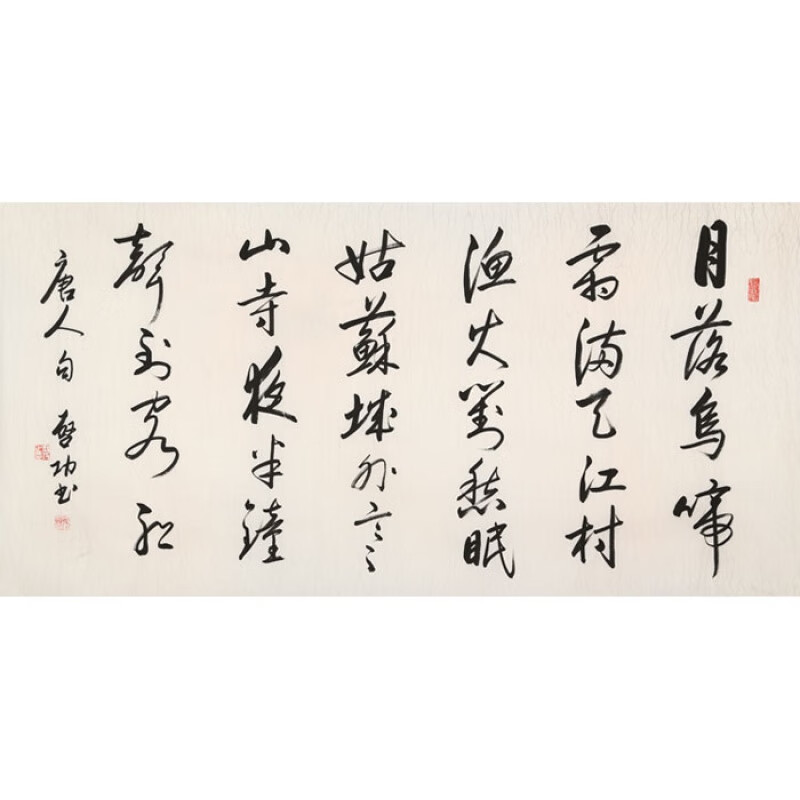 月落烏啼
霜滿天江村
漁火對愁眠
姑蘇城外寒
山寺夜半鐘
聲到客船
唐人句 啟功書